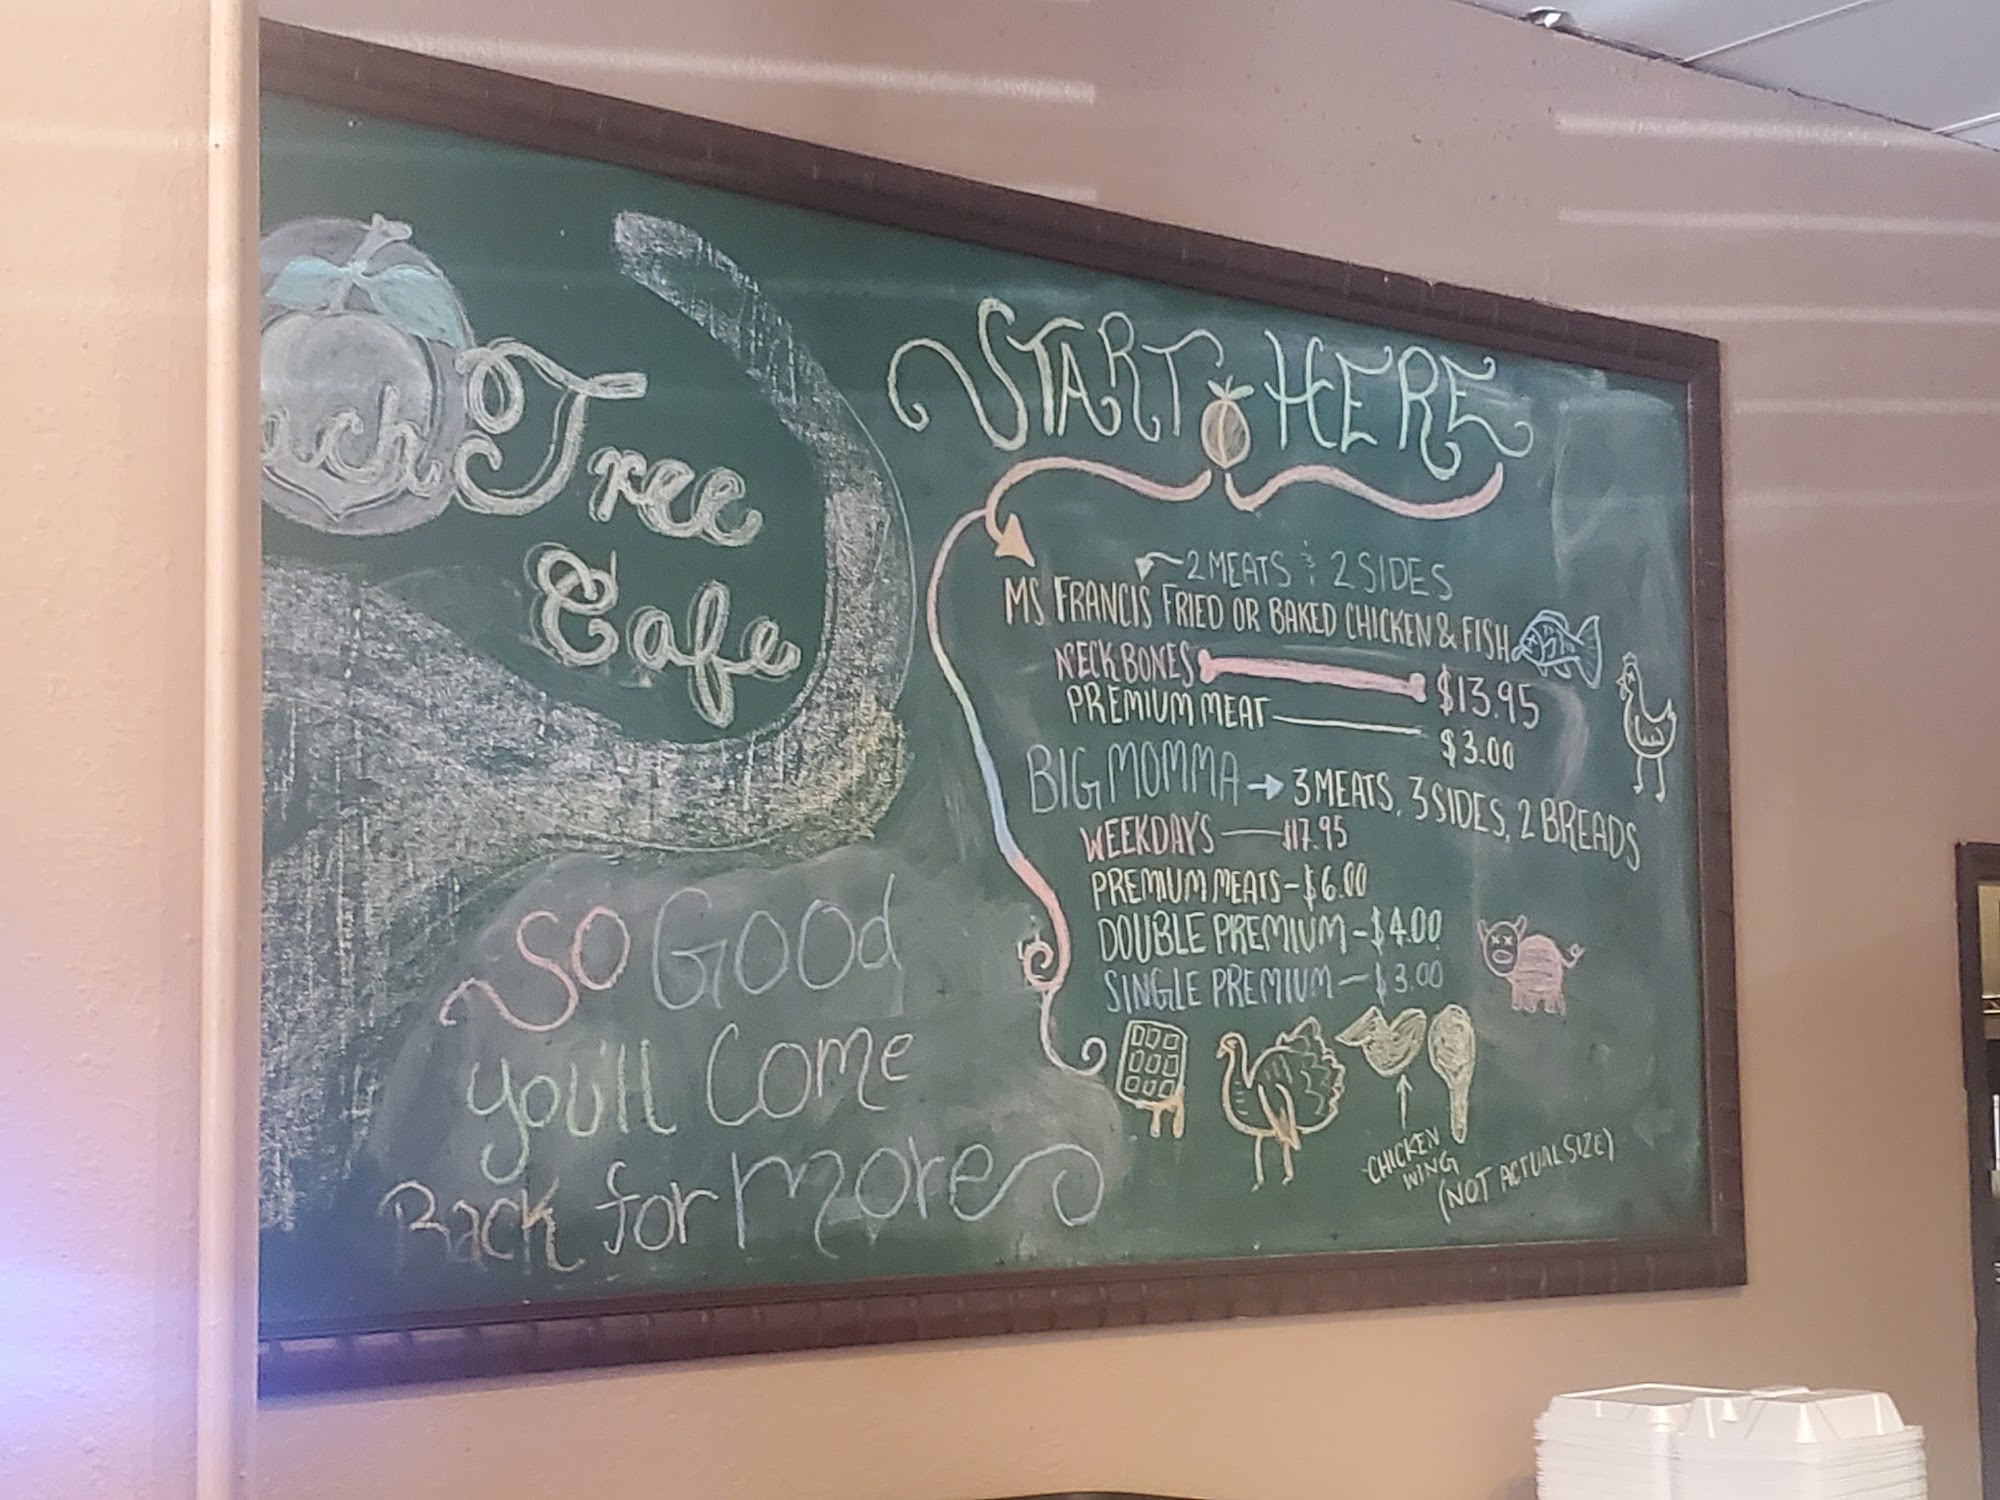 ach Tree
Cafe
So Good
you'll Come
Back for more
START HERE
2 MEATS & 2 SIDES
MS FRANCIS FRIED OR BAKED CHICKEN & FISH
NECKBONES $13.95
PREMIUM MEAT $3.00
BIG MOMMA → 3 MEATS, 3 SIDES, 2 BREADS
WEEKDAYS — $17.95
PREMIUM MEATS - $6.00
DOUBLE PREMIUM - $4.00
SINGLE PREMIUM - $3.00
CHICKEN
WING
(NOT ACTUAL SIZE)